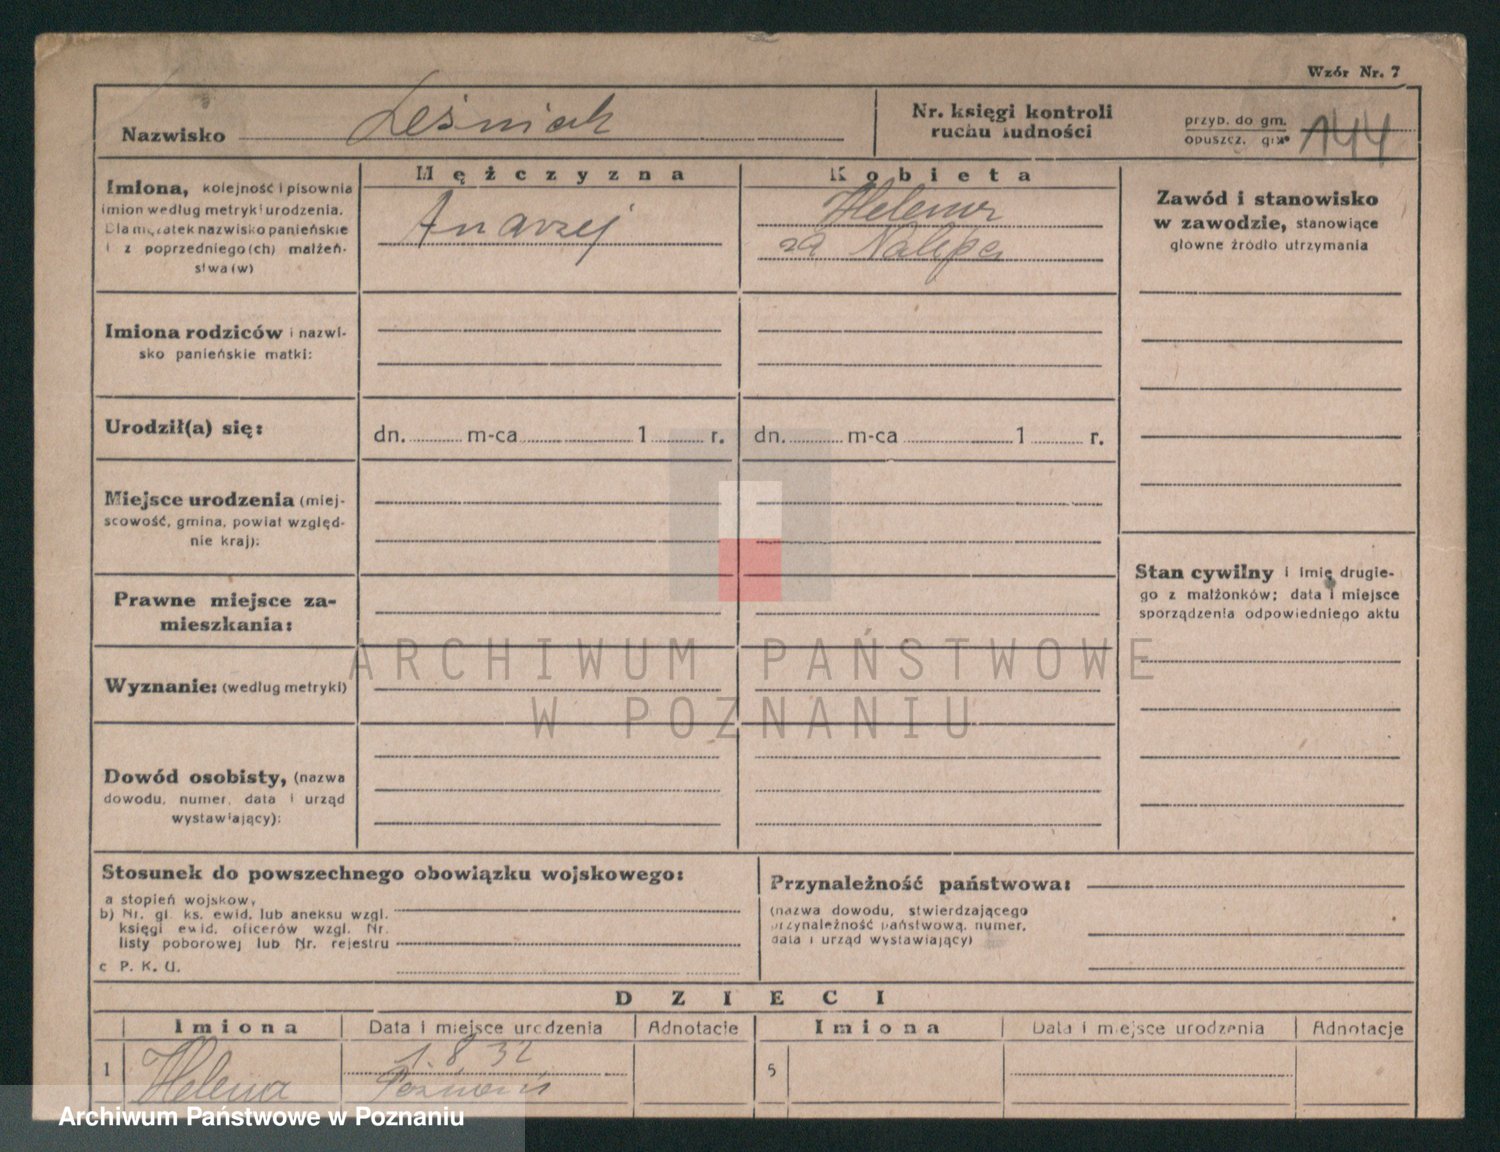 Wzór Nr. 7
Nazwisko Leśniak
Nr. księgi kontroli
ruchu ludności
przyb. do gm.
opuszcz. gm. 144
Imiona, kolejność i pisownia
imion według metryki urodzenia.
Dla mężatek nazwisko panieńskie
i z poprzedniego(ch) małżeń-
stwa(w)
Mężczyzna
Andrzej
Kobieta
Helena
za Nalepa
Zawód i stanowisko
w zawodzie, stanowiące
główne źródło utrzymania
Imiona rodziców i nazwi-
sko panieńskie matki:
Urodził(a) się:
dn. m-ca 1 r.
dn. m-ca 1 r.
Miejsce urodzenia (miej-
scowość, gmina, powiat względ-
nie kraj):
Prawne miejsce za-
mieszkania:
Wyznanie: (według metryki)
Dowód osobisty, (nazwa
dowodu, numer, data i urząd
wystawiający):
Stan cywilny i imię drugie-
go z małżonków; data i miejsce
sporządzenia odpowiedniego aktu
Stosunek do powszechnego obowiązku wojskowego:
a stopień wojskowy
b) Nr. gł. ks. ewid. lub aneksu wzgl.
księgi ewid. oficerów wzgl. Nr.
listy poborowej lub Nr. rejestru
c P. K. U.
Przynależność państwowa:
(nazwa dowodu, stwierdzającego
przynależność państwową, numer,
data i urząd wystawiający)
DZIECI
Imiona Data i miejsce urodzenia Adnotacje Imiona Data i miejsce urodzenia Adnotacje
1 Helena 1. 8 32
Poznań
5
ARCHIWUM PAŃSTWOWE
W POZNANIU
Archiwum Państwowe w Poznaniu